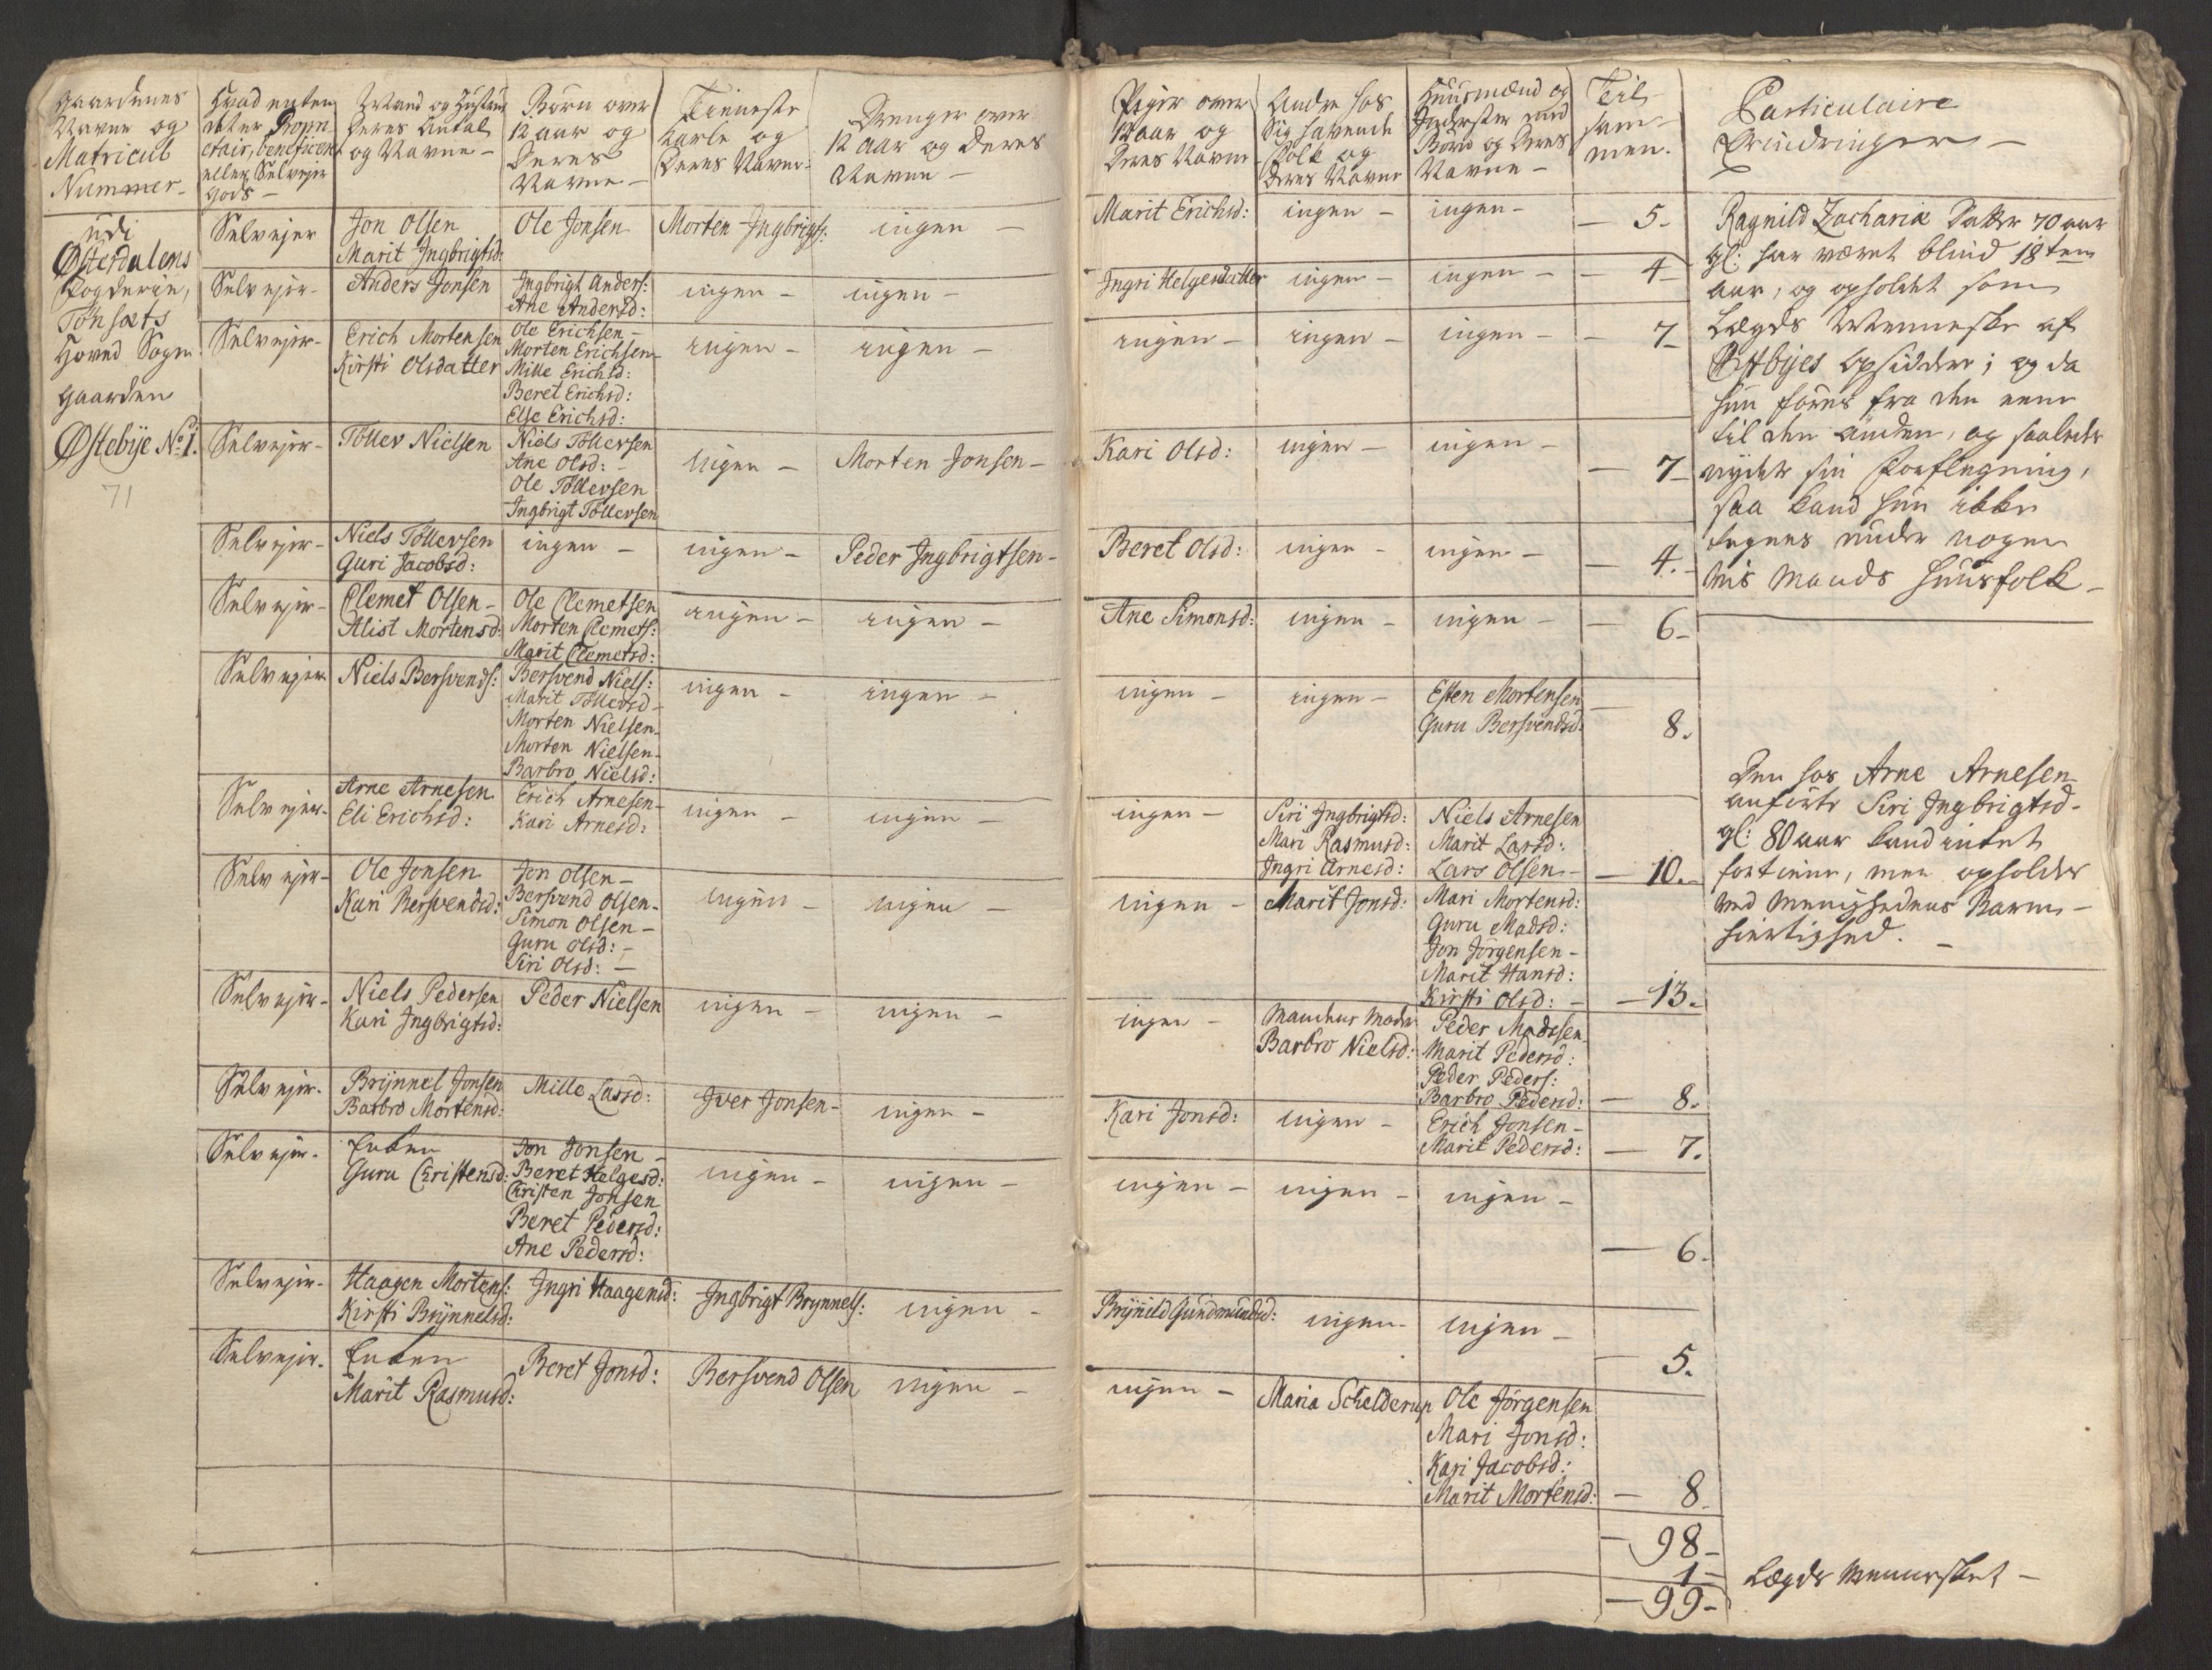 Gaardenes
Navne og
Matricul
Nummer-
Hvad enten
det er Propri
etair, beneficert
eller Selvejer
Gods -
Mand og Hustrue
Deres Antal
og Navne -
Børn over
12 aar og
Deres
Navne -
Tieneste
Karle og
Deres Navne-
Drenge over
12 aar og Deres
Navne -
Piger over
12 aar og
Deres Navne
Andre hos
Sig havende
Folk og
Deres Navne
Huusmænd og
Inderster med
Børn og Deres
Navne -
Til
sam-
men.
Particulaire
Erindringer -
udi
Østerdalens
Fogderie,
Tønsæts
Hoved Sogn
Gaarden
Østebÿe No 1.
71
Selvejer
Jon Olsen
Marit Jngbrigtsd:
Ole Jonsen
Morten Jngbrigs:
ingen -
Marit Erichsd:
ingen -
ingen -
- 5-
Selvejer-
Anders Jonsen
Jngbrigt Anders:
Ane Andersd:
ingen -
ingen -
Jngri Helgesdatter
ingen -
ingen -
- 4-
Selvejer-
Erich Mortensen
Kirsti Olsdatter
Ole Erichsen -
Morten Erichsen
Mille Erichsd:
Beret Erichsd:
Else Erichsd:
ingen -
ingen -
ingen -
ingen -
ingen -
- 7-
Selvejer-
Töller Nielsen
Niels Töllersen
Ane Olsd: -
Ole Töllersen
Jngbrigt Töllersen
ingen -
Morten Jonsen -
Kari Olsd:
ingen -
ingen -
- 7-
Selvejer-
Niels Töllersen
Guri Jacobsd:
ingen -
ingen -
Peder Jngbrigtsen -
Beret Olsd:
ingen -
ingen -
- 4.-
Selvejer-
Clemet Olsen -
Alist Mortensd:
Ole Clemetsen
Morten Clemets:
Marit Clemetsd:
ingen -
ingen -
Ane Simonsd:
ingen -
ingen -
- 6-
Selvejer
Niels Bersvends:
Bersvend Niels:
Marit Töllersd -
Morten Nielsen -
Morten Nielsen -
Barbro Nielsd:
ingen -
ingen -
ingen -
ingen -
Esten Mortensen
Guru Bersvendsd:
- 8.
Selvejer-
Arne Arnesen
Eli Erichsd:
Erich Arnesen -
Kari Arnesd:
ingen -
ingen -
ingen -
Siri Jngbrigtsd:
Mari Rasmusd:
Jngri Arnesd:
Niels Arnesen
Marit Larsd:
Lars Olsen -
- 10.-
Selvejer-
Ole Jonsen
Kari Bersvendsd:
Jon Olsen -
Bersvend Olsen -
Simon Olsen -
Guru Olsd: -
Siri Olsd: -
ingen -
ingen -
ingen -
Marit Jonsd:
Mari Mortensd:
Guru Madsd:
Jon Jörgensen -
Marit Hansd:
Kirsti Olsd: -
- 13.
Selvejer-
Niels Pedersen
Kari Jngbrigtsd:
Peder Nielsen
ingen -
ingen -
ingen -
Mandens Moder
Barbro Nielsd:
Peder Madssen
Marit Pedersd:
Peder Peders:
Barbro Pedersd:
- 8.
Selvejer-
Brÿnnel Jonsen
Barbro Mortensd:
Mille Larsd:
Jver Jonsen -
ingen -
Kari Jonsd:
ingen -
Erich Jonsen -
Marit Pedersd:
- 7.
Selvejer-
Enken
Guru Christensd:
Jon Jonsen -
Beret Helgesd:
Christen Jonsen
Beret Pedersd:
Ane Pedersd:
ingen -
ingen -
ingen -
ingen -
ingen -
- 6.
Selvejer-
Haagen Mortens:
Kirsti Brÿnnelsd:
Jngri Haagensd:
Jngbrigt Brynnels:
ingen -
Brÿnild Gundmundsd:
ingen -
ingen -
5.
Selvejer-
Enken
Marit Rasmusd:
Beret Jonsd:
Bersvend Olsen
ingen -
ingen -
Maria Schelderup
Ole Jörgensen
Mari Jonsd:
Kari Jacobsd:
Marit Mortensd:
- 8.
- 98-
1-
- 99-
Ragnild Zachariæ Datter 70 aar
gl: har været blind 18ten
aar, og opholdet som
Lægds Menneske af
Østbÿes Opsiddere; og da
hun føres fra den eene
til den anden, og saaledes
nyder sin Forflegning,
saa kand hun ikke
regnes under nogen
vis Mands Huusfolk -
Den hos Arne Arnesen
anførte Siri Jngbrigtsd-
gl: 80 aar kand intet
fortiene, men opholdes
ved Menighedens Barm-
hiertighed. -
Lægds Mennesket -